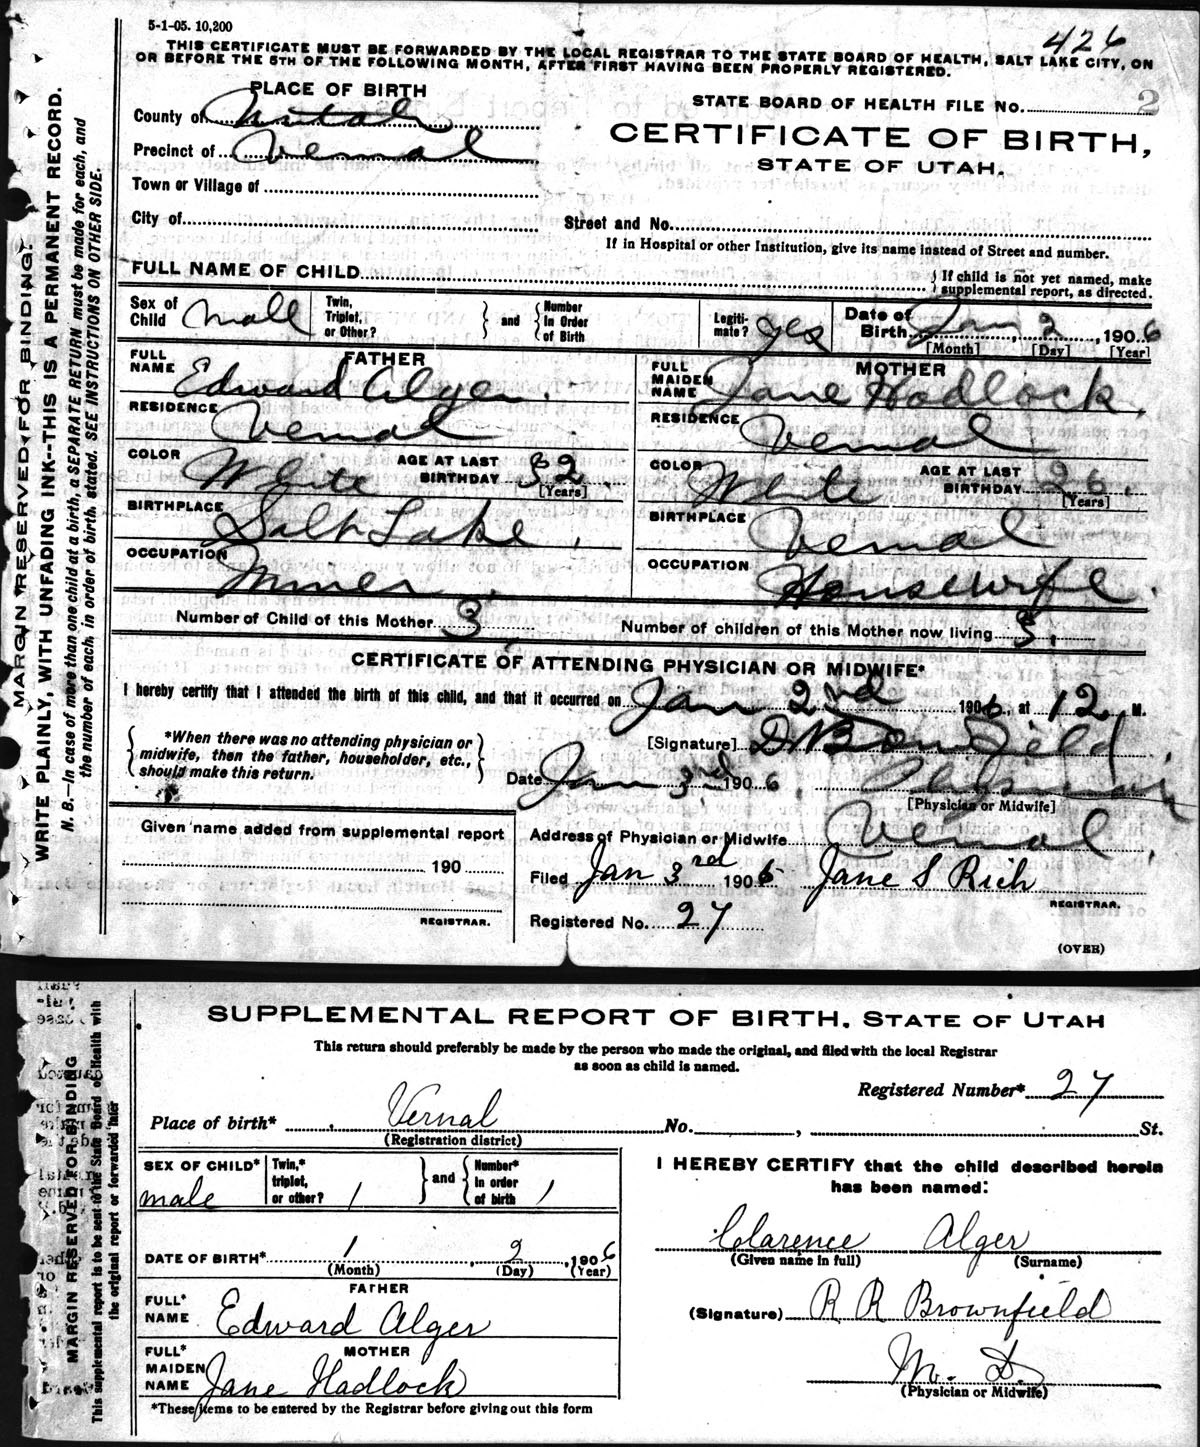 5-1-05. 10,200
426
THIS CERTIFICATE MUST BE FORWARDED BY THE LOCAL REGISTRAR TO THE STATE BOARD OF HEALTH, SALT LAKE CITY, ON
OR BEFORE THE 5TH OF THE FOLLOWING MONTH, AFTER FIRST HAVING BEEN PROPERLY REGISTERED.
MARGIN RESERVED FOR BINDING.
WRITE PLAINLY, WITH UNFADING INK---THIS IS A PERMANENT RECORD.
N. B.—In case of more than one child at a birth, a SEPARATE RETURN must be made for each, and
the number of each, in order of birth, stated. SEE INSTRUCTIONS ON OTHER SIDE.
PLACE OF BIRTH
STATE BOARD OF HEALTH FILE NO. 2
County of
CERTIFICATE OF BIRTH,
Precinct of Vernal
STATE OF UTAH.
Town or Village of
City of
Street and No.
If in Hospital or other Institution, give its name instead of Street and number.
FULL NAME OF CHILD
{ If child is not yet named, make
supplemental report, as directed.
Sex of Child Male Twin, Triplet, or Other? } and { Number In Order of Birth Legiti- mate? yes Date of Birth Jan 2, 1906
[Month] [Day] [Year]
FATHER
FULL NAME Edward Alger.
MOTHER
FULL MAIDEN NAME Jane Hadlock.
RESIDENCE Vernal
RESIDENCE Vernal
COLOR White AGE AT LAST BIRTHDAY 32 [Years]
COLOR White AGE AT LAST BIRTHDAY 26. [Years]
BIRTHPLACE Salt Lake.
BIRTHPLACE Vernal
OCCUPATION Miner.
OCCUPATION Housewife.
Number of Child of this Mother 3. Number of children of this Mother now living 3.
CERTIFICATE OF ATTENDING PHYSICIAN OR MIDWIFE*
I hereby certify that I attended the birth of this child, and that it occurred on Jan 2nd 1906, at 12 M.
{ *When there was no attending physician or
midwife, then the father, householder, etc.,
should make this return. }
[Signature] Brownfield.
Date Jan 3rd 1906. Physician
[Physician or Midwife]
Given name added from supplemental report
190
REGISTRAR.
Address of Physician or Midwife Vernal.
Filed Jan 3rd 1906 Jane S Rich
REGISTRAR.
Registered No. 27
(OVER)
SUPPLEMENTAL REPORT OF BIRTH, STATE OF UTAH
This return should preferably be made by the person who made the original, and filed with the local Registrar
as soon as child is named.
MARGIN RESERVED FOR BINDING
This supplemental report is to be sent to the State Board of Health with
the original report or forwarded later
Registered Number* 27
Place of birth* Vernal No. , St.
(Registration district)
SEX OF CHILD* male Twin,* triplet, or other? 1 } and { Number* In order of birth 1
I HEREBY CERTIFY that the child described herein
has been named:
Clarence Alger
(Given name in full) (Surname)
DATE OF BIRTH* 1, 2, 1906
(Month) (Day) (Year)
FATHER
FULL* NAME Edward Alger
(Signature) R R Brownfield
MOTHER
FULL* MAIDEN NAME Jane Hadlock
M. D.
(Physician or Midwife)
*These items to be entered by the Registrar before giving out this form